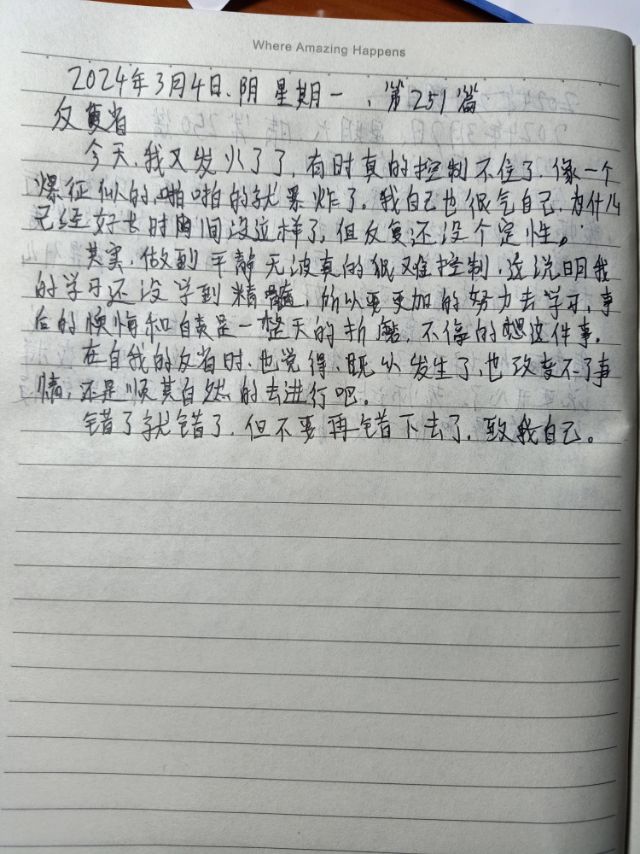 Where Amazing Happens
2024年3月4日、阴 星期一 、第251篇
反复省
今天，我又发火了了，有时真的控制不住了，像一个
爆征似的，啪啪的就暴炸了，我自己也很气自己，为什么
已经好长时间间没这样了，但反复还没个定性。
其实，做到平静无波真的很难控制，这说明我
的学习还没学到精髓，所以要更加的努力去学习，事
后的懊悔和自责是一整天的折磨，不停的想这件事。
在自我的反省时，也觉得，既以发生了，也改变不了事
情，还是顺其自然的去进行吧。
错了就错了，但不要再错下去了，致我自己。